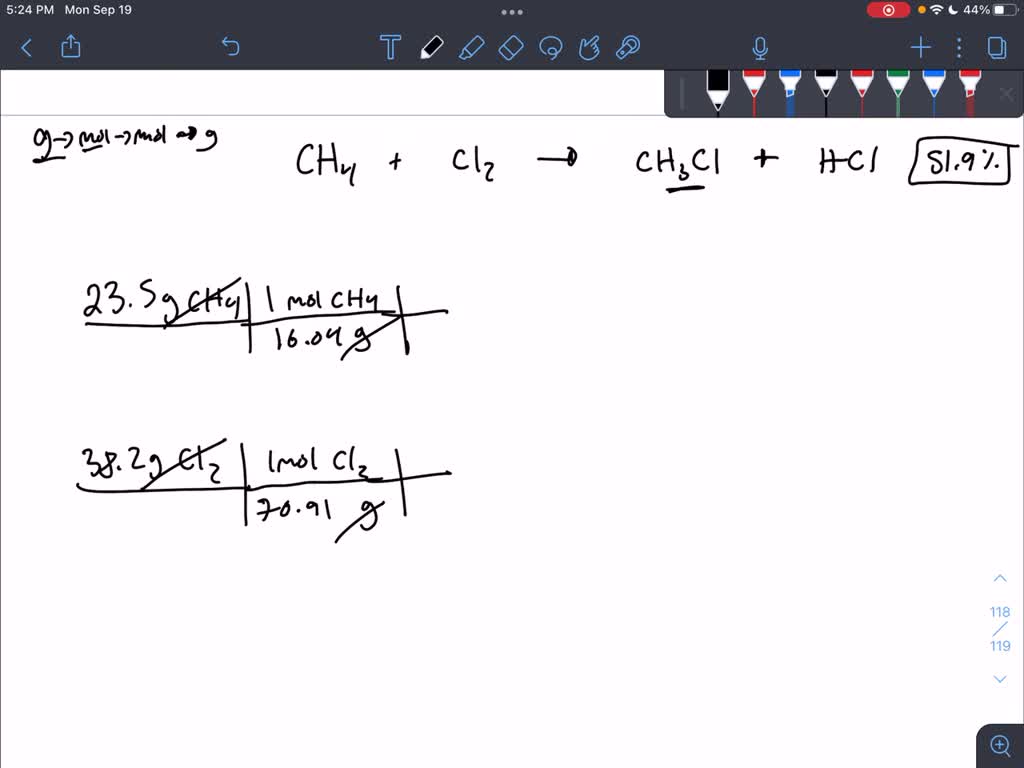 5:24 PM Mon Sep 19
44%
T
g→mol→mol→g
CH₄ + Cl₂ → CH₃Cl + HCl 51.9%
23.5g CH₄ 1 mol CH₄
16.04 g
38.2g Cl₂ 1mol Cl₂
70.91 g
118
/
119